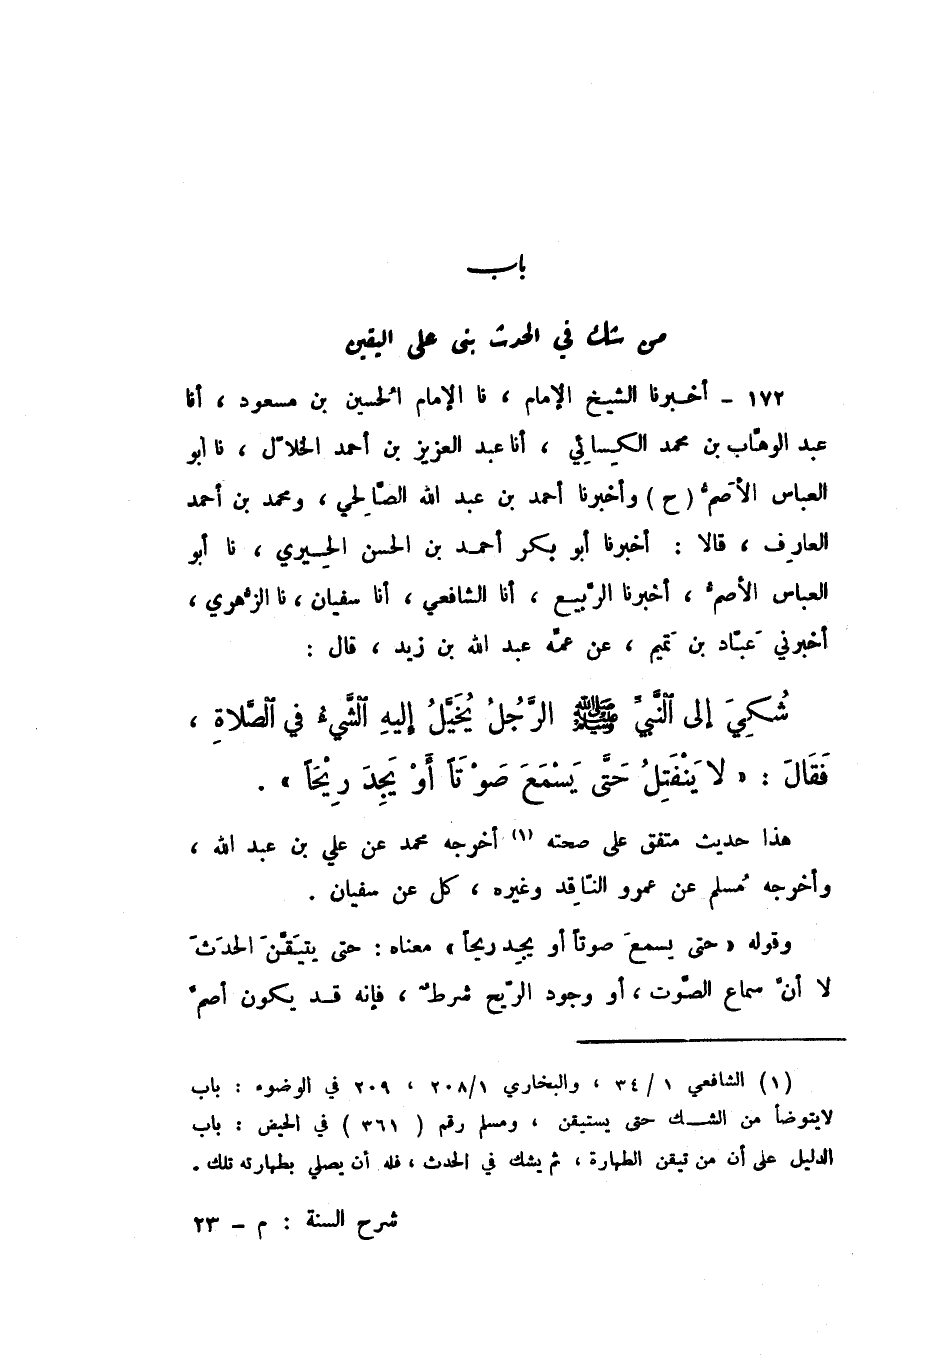 باب
من شك في الحدث بنى على اليقين
١٧٢ - أخبرنا الشيخ الإمام ، نا الإمام الحسين بن مسعود ، أنا
عبد الوهّاب بن محمد الكِسائي ، أنا عبد العزيز بن أحمد الخلاّل ، نا أبو
العباس الأصَمُّ ( ح ) وأخبرنا أحمد بن عبد الله الصّالحي ، ومحمد بن أحمد
العارِف ، قالا : أخبرنا أبو بكر أحمد بن الحسن الحِيري ، نا أبو
العباس الأصمُّ ، أخبرنا الرّبيع ، أنا الشافعي ، أنا سفيان ، نا الزُّهري ،
أخبرني عَبّاد بن تَميم ، عن عمِّه عبد الله بن زيد ، قال :
شُكِيَ إلى النَّبيِّ ﷺ الرَّجُلُ يُخَيَّلُ إليهِ الشَّيءُ في الصَّلاةِ ،
فَقَالَ : « لا يَنْفَتِلُ حَتَّى يَسْمَعَ صَوْتَاً أَوْ يَجِدَ رِيْحَاً » .
هذا حديث متفق على صحته (١) أخرجه محمد عن علي بن عبد الله ،
وأخرجه مُسلم عن عمرو النّاقِد وغيره ، كل عن سفيان .
وقوله « حتى يسمعَ صوتاً أو يجد ريحاً » معناه : حتى يتيَقَّنَ الحدَثَ
لا أنَّ سماع الصّوت ، أو وجود الرّيح شرطٌ ، فإنه قد يكون أصمَّ
(١) الشافعي ١ / ٣٤ ، والبخاري ٢٠٨/١ ، ٢٠٩ في الوضوء : باب
لايتوضأ من الشك حتى يستيقن ، ومسلم رقم ( ٣٦١ ) في الحيض : باب
الدليل على أن من تيقن الطهارة ، ثم يشك في الحدث ، فله أن يصلي بطهارته تلك .
شرح السنة : م - ٢٣